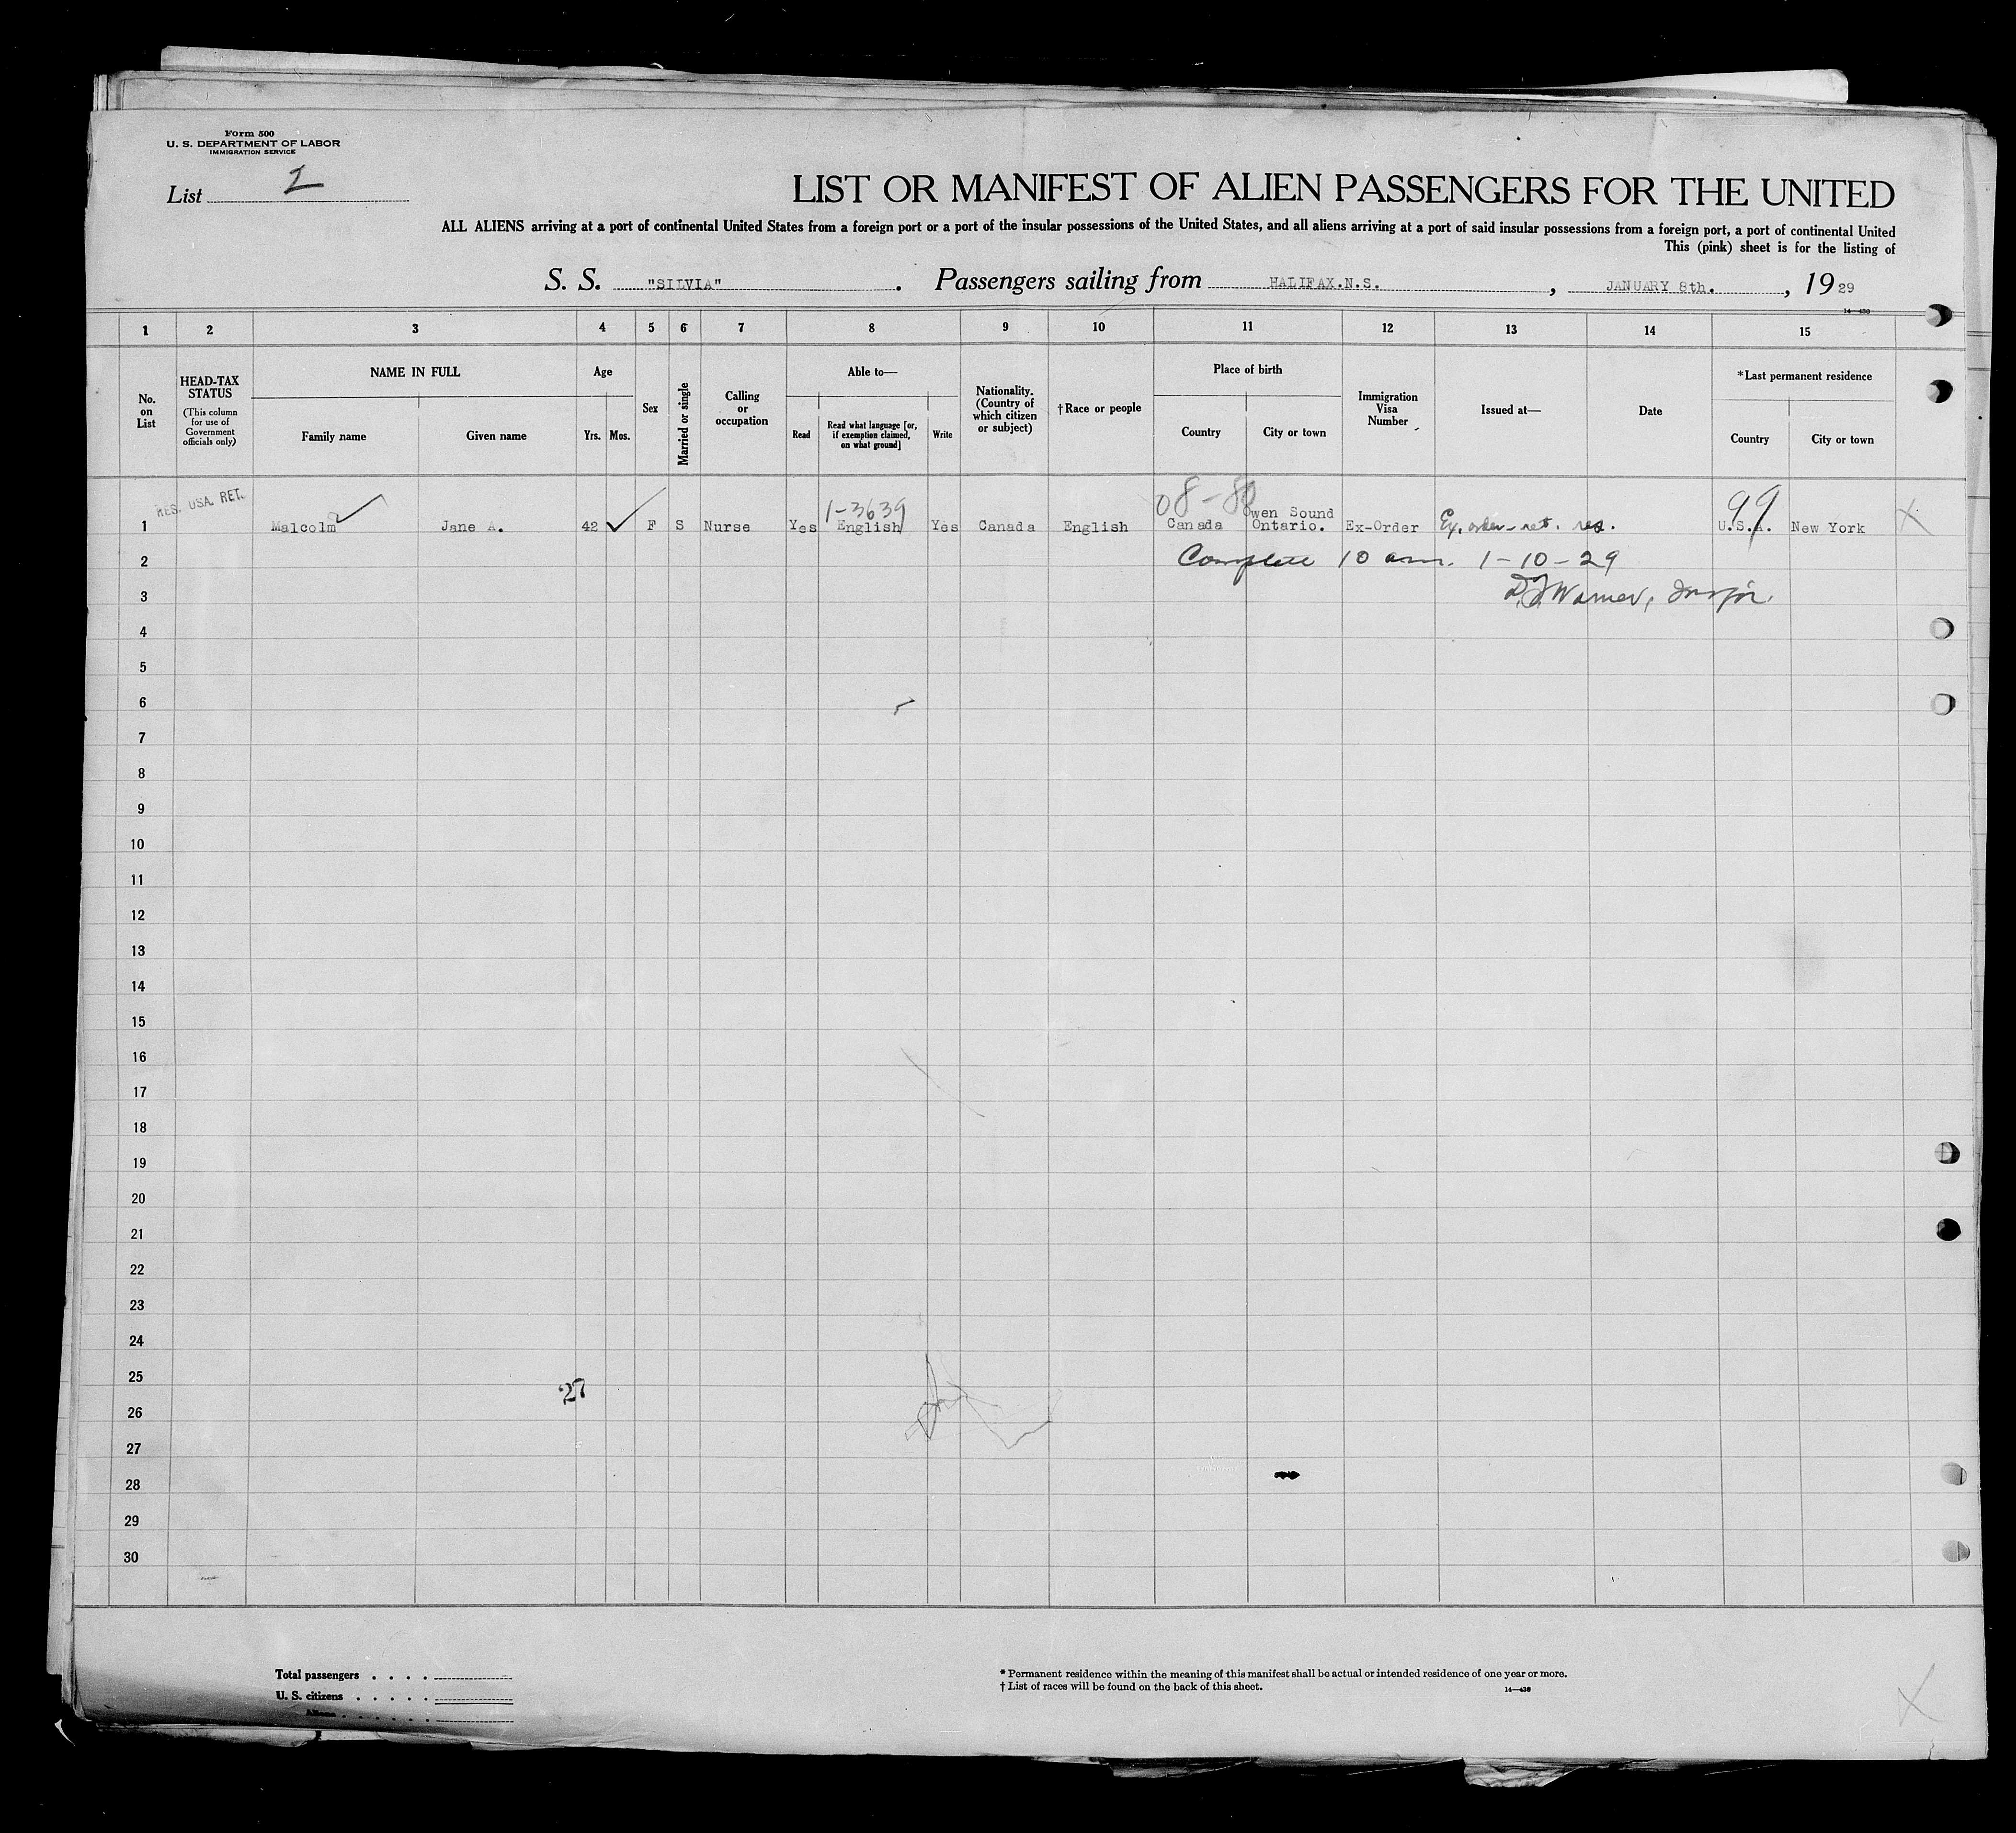 Form 500
U. S. DEPARTMENT OF LABOR
IMMIGRATION SERVICE
List
LIST OR MANIFEST OF ALIEN PASSENGERS FOR THE UNITED
ALL ALIENS arriving at a port of continental United States from a foreign port or a port of the insular possessions of the United States, and all aliens arriving at a port of said insular possessions from a foreign port, a port of continental United
This (pink) sheet is for the listing of
S. S. "SILVIA" . Passengers sailing from HALIFAX.N.S. , JANUARY 8th. , 1929
14—430
1 2 3 4 5 6 7 8 9 10 11 12 13 14 15
No. on List
HEAD-TAX STATUS
(This column for use of Government officials only)
NAME IN FULL
Family name Given name
Age
Yrs. Mos.
Sex
Married or single
Calling or occupation
Able to—
Read
Read what language [or, if exemption claimed, on what ground]
Write
Nationality. (Country of which citizen or subject)
†Race or people
Place of birth
Country City or town
Immigration Visa Number
Issued at—
Date
*Last permanent residence
Country City or town
RES. USA. RET.
1-3639
08-80
99
1 Malcolm Jane A. 42 F S Nurse Yes English Yes Canada English Canada Owen Sound Ontario. Ex-Order Ex. order-ret. res. U.S.A. New York X
2 Complete 10 am. 1-10-29
3 Warner, Inspr.
4
5
6
7
8
9
10
11
12
13
14
15
16
17
18
19
20
21
22
23
24
25
27
26
27
28
29
30
Total passengers . . . .
U. S. citizens . . . . .
Aliens . . . . . .
* Permanent residence within the meaning of this manifest shall be actual or intended residence of one year or more.
† List of races will be found on the back of this sheet.
14—430
X